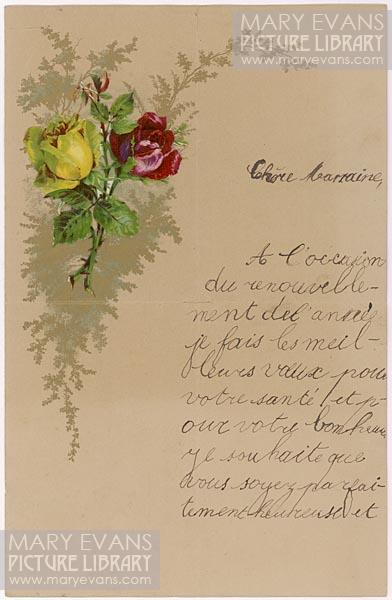 MARY EVANS
PICTURE LIBRARY
www.maryevans.com
Chère Marraine,
A l'occasion
du renouvelle-
ment de l'année
je fais les meil-
leurs vœux pour
votre santé et p-
our votre bonheur
je souhaite que
vous soyez parfai-
tement heureuse et
MARY EVANS
PICTURE LIBRARY
www.maryevans.com